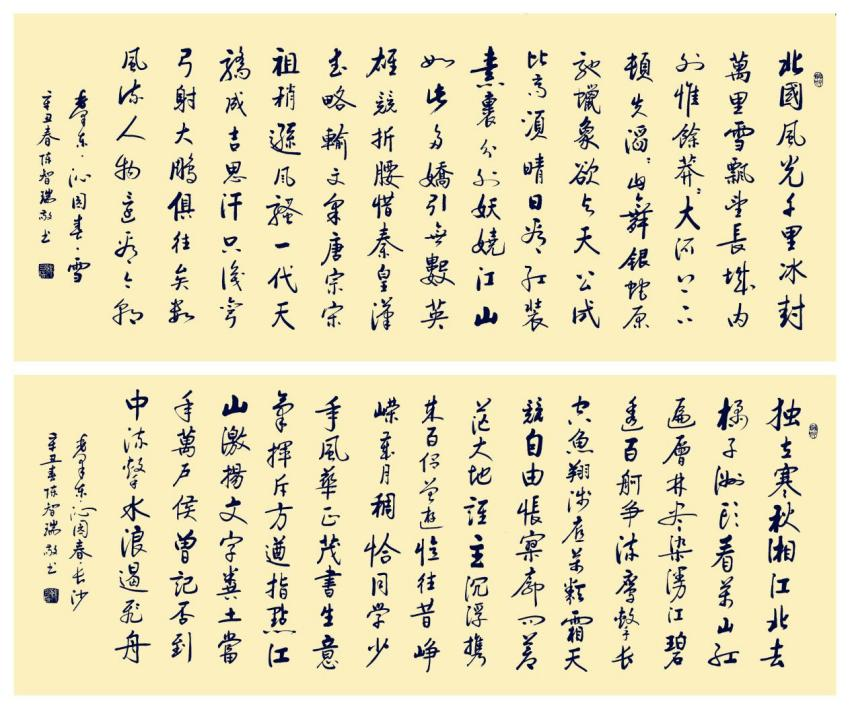 北國風光千里冰封
萬里雪飄望長城内
外惟餘莽〻大河上下
頓失滔〻山舞銀蛇原
馳蠟象欲与天公試
比高須晴日看紅裝
素裹分外妖嬈江山
如此多嬌引無數英
雄競折腰惜秦皇漢
武略輸文采唐宗宋
祖稍遜風騷一代天
驕成吉思汗只識彎
弓射大鵰俱往矣數
風流人物還看今朝
毛澤東·沁園春·雪
辛丑春陳智瑞敬书
独立寒秋湘江北去
橘子洲头看萬山紅
遍層林盡染漫江碧
透百舸争流鷹擊長
空魚翔淺底萬類霜天
競自由悵寥廓问蒼
茫大地誰主沉浮携
來百侣曾遊憶往昔崢
嶸歲月稠恰同學少
年風華正茂書生意
氣揮斥方遒指點江
山激揚文字糞土當
年萬户侯曾記否到
中流擊水浪遏飛舟
毛澤东·沁園春·长沙
辛丑春陳智瑞敬书